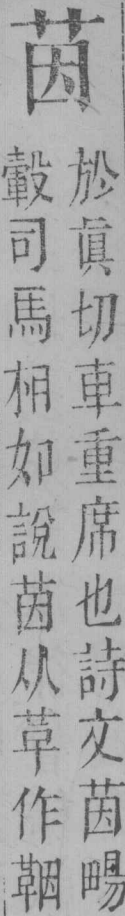 茵
於眞切車重席也詩文茵暢
轂司馬相如說茵从革作鞇